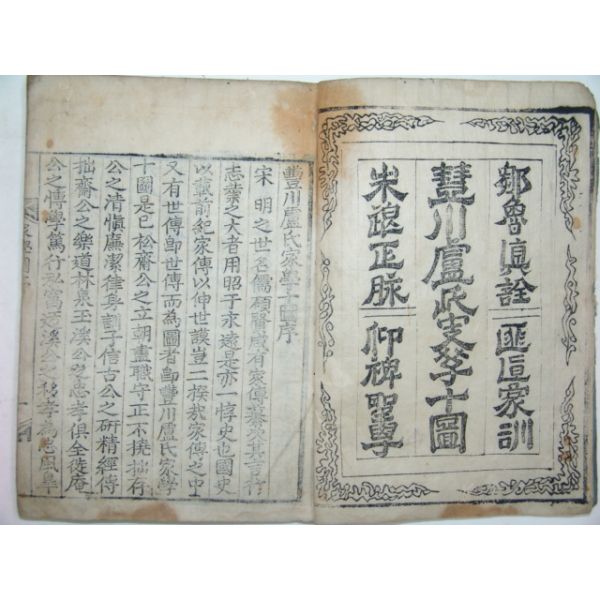 鄒魯眞詮 匪直家訓
豐川盧氏家學十圖
朱退正脉 仰裨聖學
豐川盧氏家學十圖序
宋明之世名儒碩賢咸有家傳纂次其言行
志業之大者用昭于永遠是亦一惇史也國史
以載前紀家傳以伸世謨豈二揆哉家傳之中
又有世傳卽世傳而為圖者卽豐川盧氏家學
十圖是已松齋公之立朝盡職守正不撓拙存
公之清愼廉潔律身訓子信古公之研精經傳
拙齋公之樂道林泉玉溪公之忠孝俱全徒庵
公之博學篤行